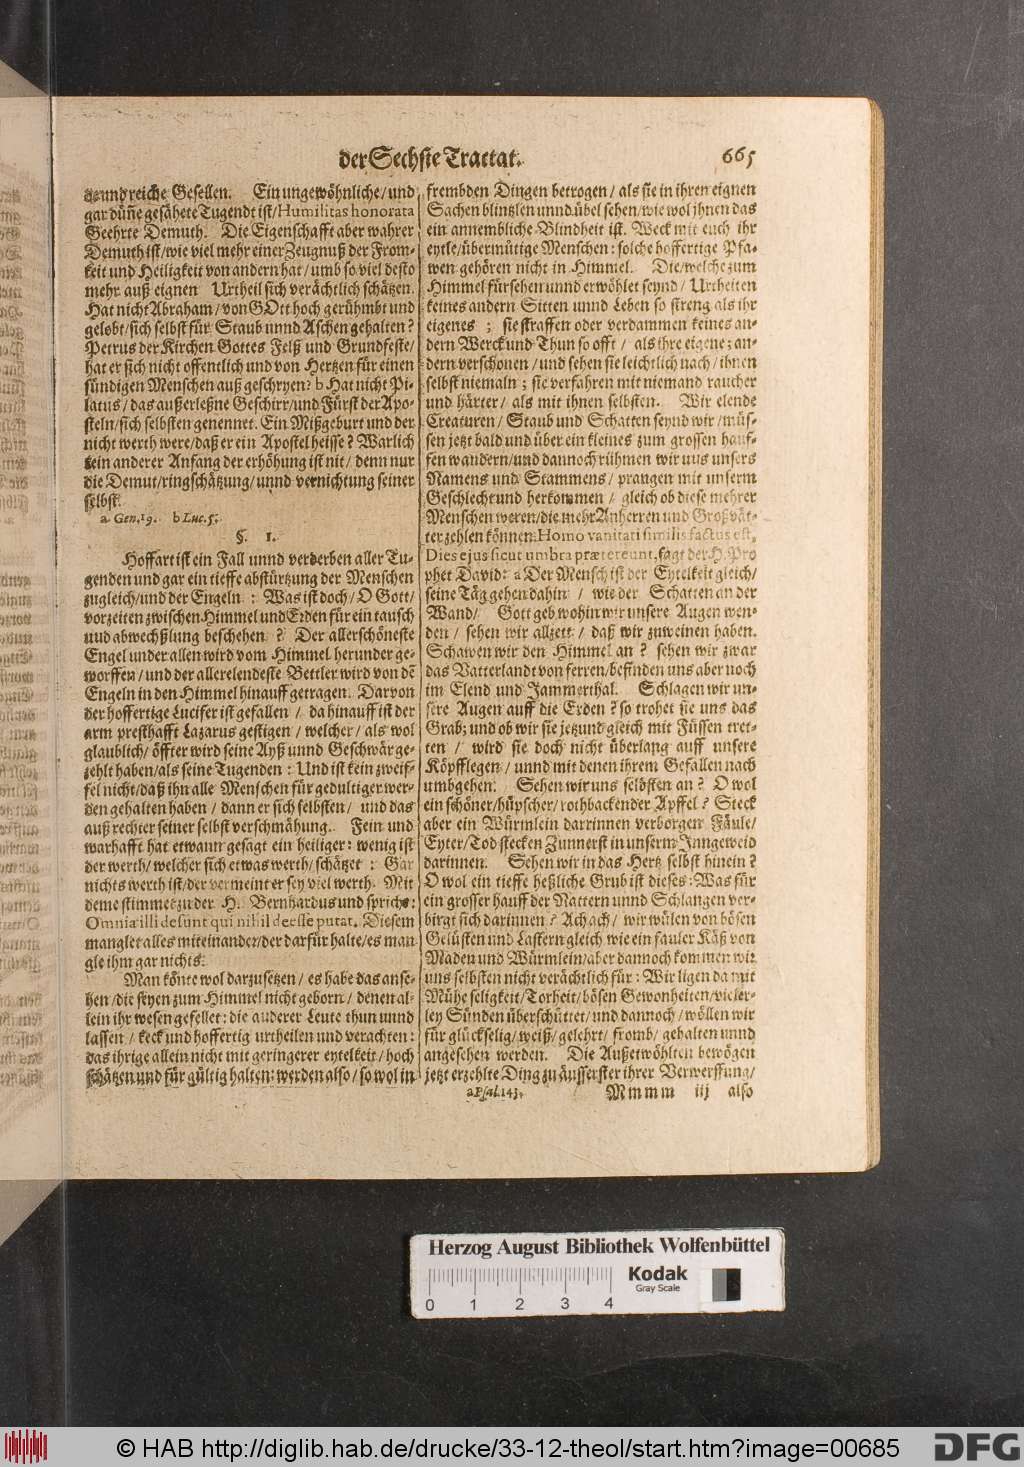 der Sechste Tractat.
665
und reiche Gesellen. Ein ungewöhnliche/ und
gar düñe gesähete Tugendt ist/ Humilitas honorata
Geehrte Demuth. Die Eigenschafft aber wahrer
Demuth ist/ wie viel mehr einer Zeugnuß der From-
keit und Heiligkeit von andern hat/ umb so viel desto
mehr auß eignen Urtheil sich verächtlich schätzen.
Hat nicht Abraham/ von GOtt hoch gerühmbt und
gelobt/ sich selbst für Staub unnd Aschen gehalten?
Petrus der Kirchen Gottes Felß und Grundfeste/
hat er sich nicht offentlich und von Hertzen für einen
sündigen Menschen auß geschryen? b Hat nicht Pi-
latus/ das außerleßne Geschirr/ und Fürst der Apo-
steln/ sich selbsten genennet. Ein Mißgeburt und der
nicht werth were/ daß er ein Apostel heisse? Warlich
kein anderer Anfang der erhöhung ist nit/ denn nur
die Demut/ ringschätzung/ unnd vernichtung seiner
selbst.
a Gen. 19. b Luc. 5.
§. 1.
Hoffart ist ein Fall unnd verderben aller Tu-
genden und gar ein tieffe abstürtzung der Menschen
zugleich/ und der Engeln: Was ist doch/ O Gott/
vorzeiten zwischen Himmel und Erden für ein tausch
und abwechßlung beschehen? Der allerschöneste
Engel under allen wird vom Himmel herunder ge-
worffen/ und der allerelendeste Bettler wird von dẽ
Engeln in den Himmel hinauff getragen. Darvon
der hoffertige Lucifer ist gefallen/ da hinauff ist der
arm presthafft Lazarus gestigen/ welcher/ als wol
glaublich/ öffter wird seine Ayß unnd Geschwär ge-
zehlt haben/ als seine Tugenden: Und ist kein zweif-
fel nicht/ daß ihn alle Menschen für gedultiger wer-
den gehalten haben/ dann er sich selbsten/ und das
auß rechter seiner selbst verschmähung. Fein und
warhafft hat etwann gesagt ein heiliger: wenig ist
der werth/ welcher sich etwas werth/ schätzet: Gar
nichts werth ist/ der vermeint er sey viel werth. Mit
deme stimmet zu der H. Bernhardus und spricht:
Omnia illi desunt qui nihil deesse putat. Diesem
manglet alles miteinander/ der darfür halte/ es man
gle ihm gar nichts.
Man könte wol darzusetzen/ es habe das anse-
hen/ die seyen zum Himmel nicht geborn/ denen al-
lein ihr wesen gefellet: die anderer Leute thun unnd
lassen/ keck und hoffertig urtheilen und verachten:
das ihrige allein nicht mit geringerer eytelkeit/ hoch
schätzen und für gültig halten: werden also/ so wol in
frembden Dingen betrogen/ als sie in ihren eignen
Sachen blintzlen unnd übel sehen/ wie wol jhnen das
ein annembliche Blindheit ist. Weck mit euch ihr
eytle/ übermütige Menschen: solche hoffertige Pfa-
wen gehören nicht in Himmel. Die/ welche zum
Himmel fürsehen unnd erwöhlet seynd/ Urtheiten
keines andern Sitten unnd Leben so streng als ihr
eigenes; sie straffen oder verdammen keines an-
dern Werck und Thun so offt/ als ihre eigene; an-
dern verschonen/ und sehen sie leichtlich nach/ ihnen
selbst niemaln; sie verfahren mit niemand raucher
und härter/ als mit ihnen selbsten. Wir elende
Creaturen/ Staub und Schatten seynd wir/ müs-
sen jetzt bald und über ein kleines zum grossen hauf-
fen wandern/ und dannoch rühmen wir uns unsers
Namens und Stammens/ prangen mit unserm
Geschlecht und herkommen/ gleich ob diese mehrer
Menschen weren/ die mehr Anherren und Großvät-
ter zehlen können. Homo vanitati similis factus est,
Dies ejus sicut umbra prætereunt. sagt der H. Pro
phet David: a Der Mensch ist der Eytelkeit gleich/
seine Täg gehen dahin/ wie der Schatten an der
Wand/ Gott geb wohin wir unsere Augen wen-
den/ sehen wir allzett/ daß wir zuweinen haben.
Schawen wir den Himmel an? sehen wir zwar
das Vatterlandt von ferren/ befinden uns aber noch
im Elend und Jammerthal. Schlagen wir un-
sere Augen auff die Erden? so trohet sie uns das
Grab; und ob wir sie jetzund gleich mit Füssen tret-
ten/ wird sie doch nicht überlang auff unsere
Köpff legen/ unnd mit denen ihrem Gefallen nach
umbgehen. Sehen wir uns selbsten an? O wol
ein schöner/ hüpscher/ rothbackender Apffel? Steck
aber ein Würmlein darrinnen verborgen Fäule/
Eyter/ Tod stecken Zunnerst in unserm Inngeweid
darinnen. Sehen wir in das Hertz selbst hinein?
O wol ein tieffe heßliche Grub ist dieses: Was für
ein grosser hauff der Nattern unnd Schlangen ver-
birgt sich darinnen? Ach ach/ wir wülen von bösen
Gelüsten und Lastern gleich wie ein fauler Käß von
Maden und Würmlein/ aber dannoch kommen wir
uns selbsten nicht verächtlich für: Wir ligen da mit
Mühe seligkeit/ Torheit/ bösen Gewonheiten/ vieler-
ley Sünden überschüttet/ und dannoch/ wöllen wir
für glückselig/ weiß/ gelehrt/ fromb/ gehalten unnd
angesehen werden. Die Außerwöhlten bewögen
jetzt erzehlte Ding zu äusserster ihrer Verwerffung/
a Psal. 143.
Mmmm iij also
Herzog August Bibliothek Wolfenbüttel
Kodak
Gray Scale
0 1 2 3 4
© HAB http://diglib.hab.de/drucke/33-12-theol/start.htm?image=00685
DFG